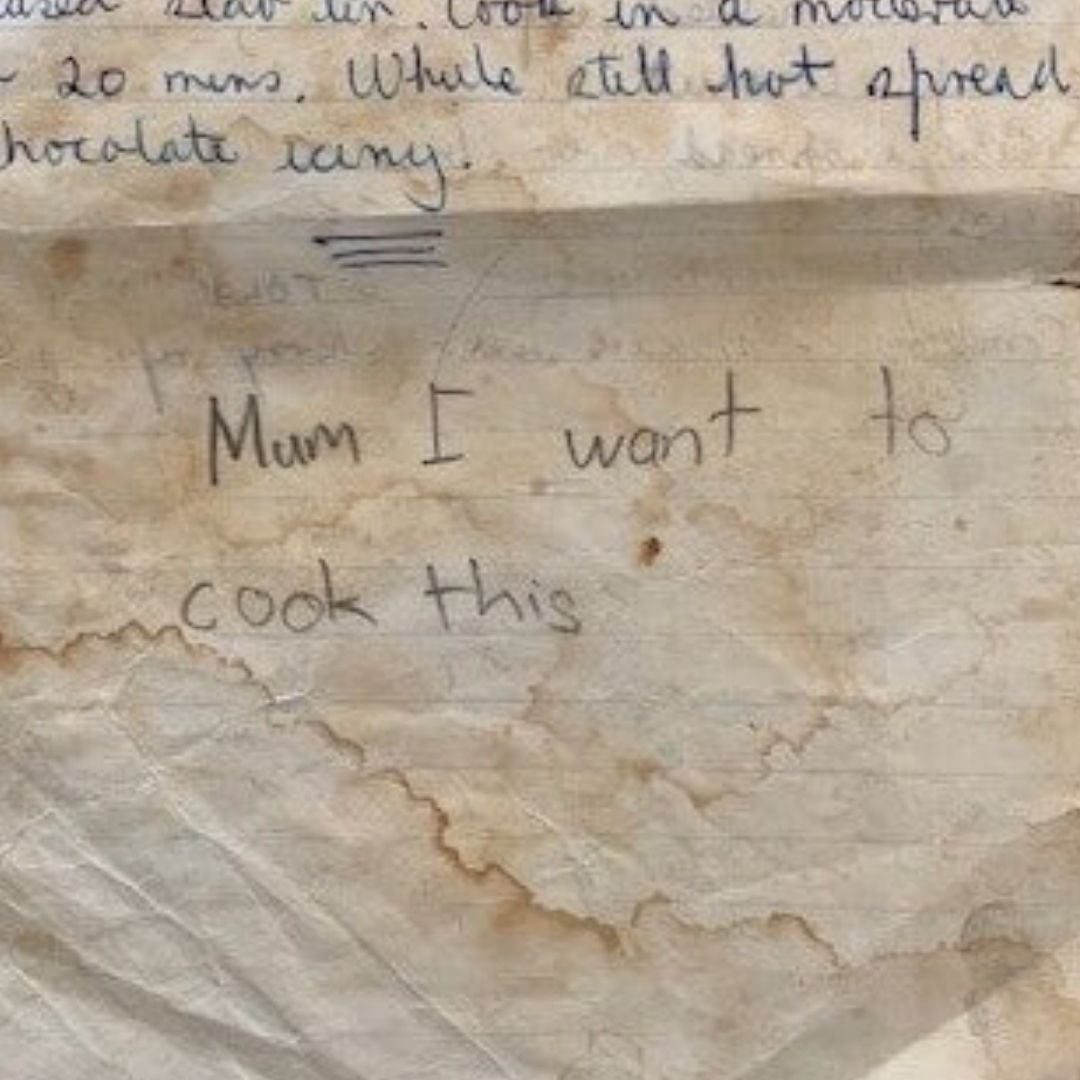 slab tin. Cook in a moderate
20 mins. While still hot spread
chocolate icing.
Mum I want to
cook this